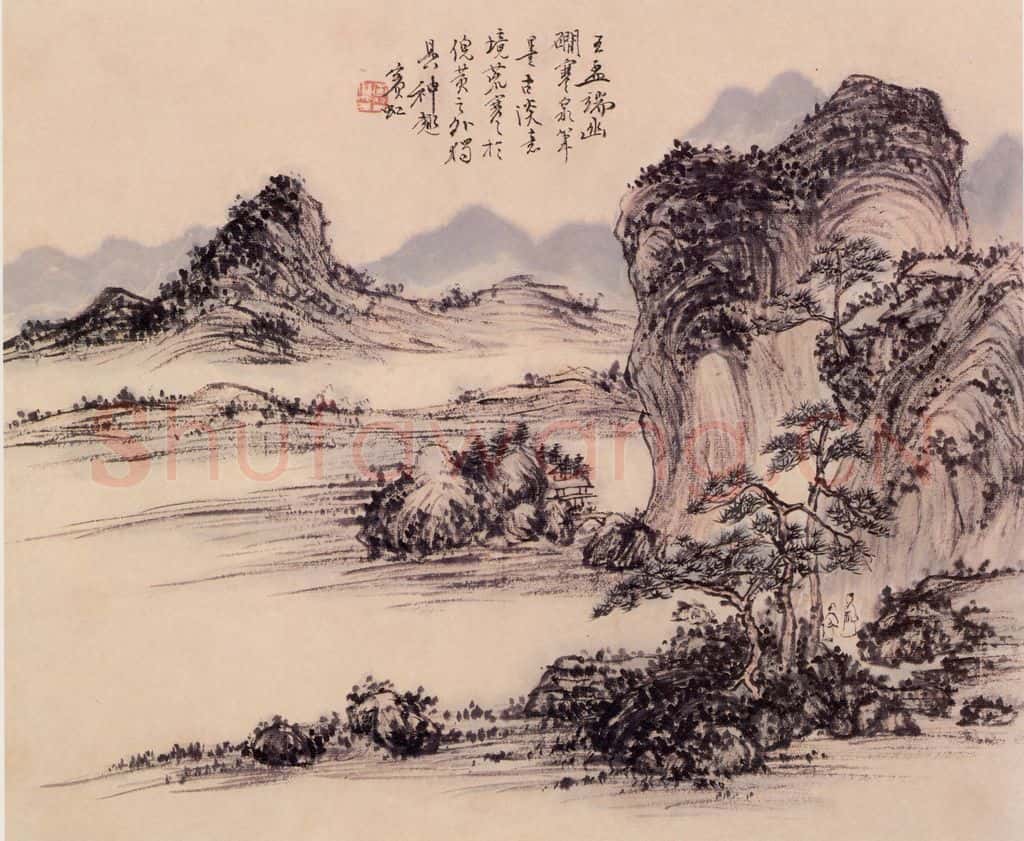 王孟端幽
磵寒泉筆
墨古淡意
境荒寒於
倪黃之外獨
具神趣
賓虹
Shufawang.CN